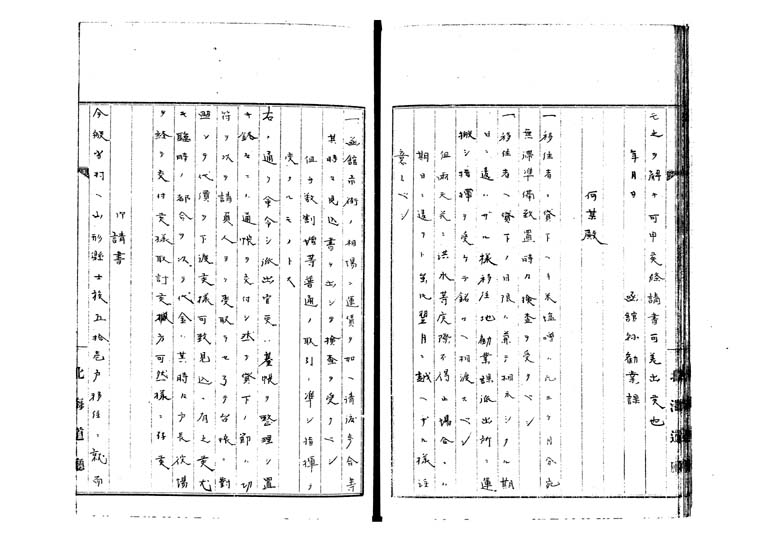 モ之ヲ解キ可申候條請書可差出候也
年月日
函館縣勧業課
何某殿
一移住者ヘ貸下ヘキ米塩噌ハ凡ニケ月分宛
無滞準備致置時々検査ヲ受クヘシ
一移住者ヘ貸下ノ日限ハ兼テ相示シタル期
日ニ違ハサル様移住地勧業課派出所ニ運
搬シ指揮ヲ受ケテ銘々ヘ相渡スヘシ
但雨天又ハ洪水等実際不得止場合ハ
期日ニ違フトモ翌月ニ越ヘサル様注
意スヘシ
一函館市街ノ相場ニ運賃ヲ加ヘ請渡歩合等
其時々見込書ヲ出シテ検査ヲ受クヘシ
但予数割増等普通ノ取引ニ準シ指揮ヲ
受クルモノトス
右ノ通リ命令シ派出官吏ハ基帳ヲ整理シ置
キ銘々ニハ通帳ヲ交付シ然ラハ貸下ノ節ハ切
符ヲ以テ請負人ヨリ受取ラセ了テ台帳ニ対
照シテ代價ヲ下渡候様可致見込ニ有之候尤
モ臨時ノ都合ヲ以テ代金ハ其時々戸長役場
ヲ経テ交付候様取計候方可然様ニ存候
御請書
今般当村ヘ山形縣士族五拾壱戸移住ニ就而
北海道廳
北海道廳